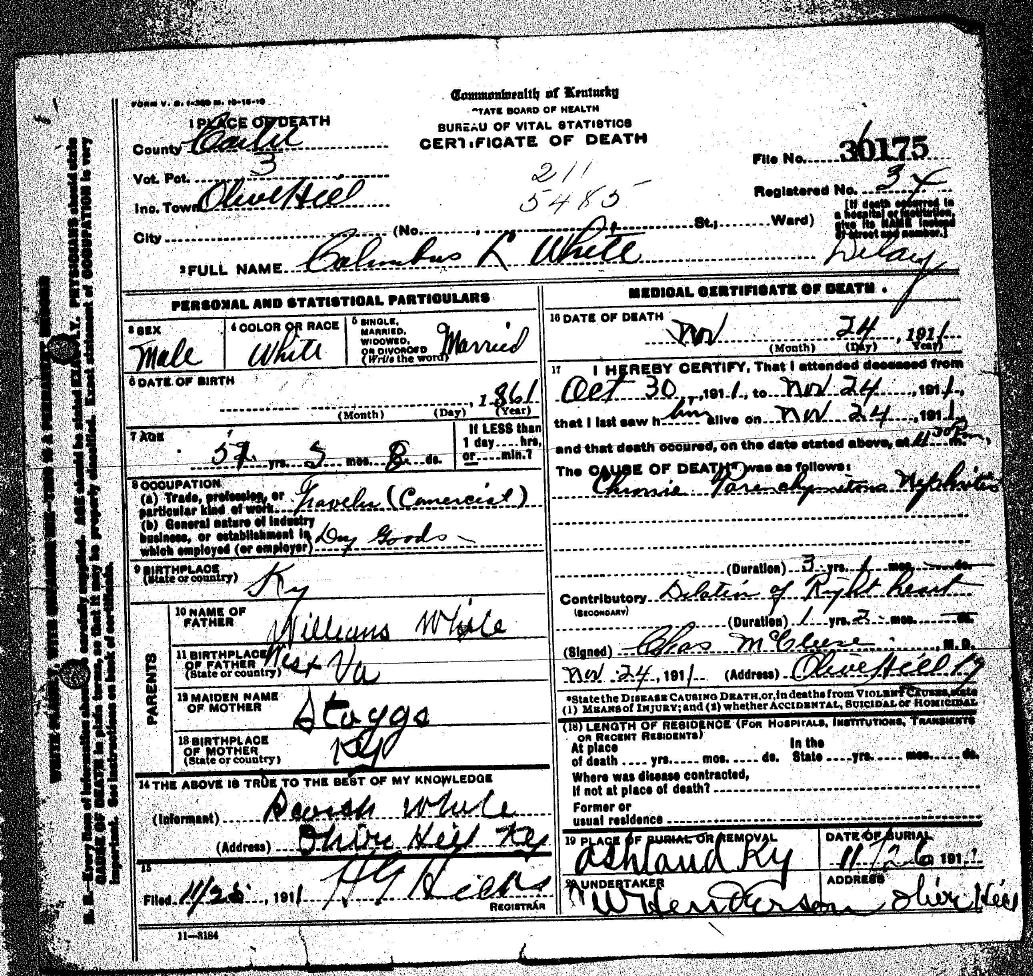 FORM V. S. 1-
Commonwealth of Kentucky
STATE BOARD OF HEALTH
BUREAU OF VITAL STATISTICS
CERTIFICATE OF DEATH
1 PLACE OF DEATH
County Carter
Vot. Pct. 3
Inc. Town Olive Hill
City (No. , St., Ward)
211
5485
File No. 30175
Registered No. 34
[If death occurred in a hospital or institution, give its NAME instead of street and number.]
2 FULL NAME Columbus L White
Delay
PERSONAL AND STATISTICAL PARTICULARS
3 SEX Male
4 COLOR OR RACE White
5 SINGLE, MARRIED, WIDOWED, OR DIVORCED (Write the word) Married
6 DATE OF BIRTH , 1861
(Month) (Day) (Year)
7 AGE yrs. 5 mos. 8 ds.
If LESS than 1 day .... hrs. or .... min.?
8 OCCUPATION
(a) Trade, profession, or particular kind of work Traveler (Comercial)
(b) General nature of industry business, or establishment in which employed (or employer) Dry Goods
9 BIRTHPLACE (State or country) Ky
PARENTS
10 NAME OF FATHER Williams White
11 BIRTHPLACE OF FATHER (State or country) West Va
12 MAIDEN NAME OF MOTHER Staggs
13 BIRTHPLACE OF MOTHER (State or country) Ky
14 THE ABOVE IS TRUE TO THE BEST OF MY KNOWLEDGE
(Informant) White
(Address) Olive Hill Ky
15
Filed 11/25, 1911 HG Hicks
REGISTRAR
11-3184
MEDICAL CERTIFICATE OF DEATH
16 DATE OF DEATH Nov 24, 1911
(Month) (Day) (Year)
17 I HEREBY CERTIFY, That I attended deceased from
Oct 30, 1911, to Nov 24, 1911,
that I last saw him alive on Nov 24, 1911,
and that death occured, on the date stated above, at 11 30 P m.
The CAUSE OF DEATH* was as follows:
Chronic Parenchymetous Nephritis
(Duration) 3 yrs. mos. ds.
Contributory Dilation of Right heart
(SECONDARY)
(Duration) 1 yrs. 2 ds.
(Signed) Chas McCleese, M.D.
Nov. 24, 1911 (Address) Olive Hill Ky
*State the DISEASE CAUSING DEATH, or, in deaths from VIOLENT CAUSES, state
(1) MEANS OF INJURY; and (2) whether ACCIDENTAL, SUICIDAL or HOMICIDAL
(18) LENGTH OF RESIDENCE (FOR HOSPITALS, INSTITUTIONS, TRANSIENTS
OR RECENT RESIDENTS)
At place of death .... yrs. .... mos. .... ds. In the State .... yrs. .... mos. .... ds.
Where was disease contracted,
If not at place of death?
Former or
usual residence
19 PLACE OF BURIAL OR REMOVAL Ashland Ky
DATE OF BURIAL 11/26 1911
20 UNDERTAKER W Henderson
ADDRESS Olive Hill
N. B.—Every item of information should be carefully supplied. AGE should be stated EXACTLY. PHYSICIANS should state
CAUSE OF DEATH in plain terms, so that it may be properly classified. Exact statement of OCCUPATION is very
important. See instructions on back of certificate.